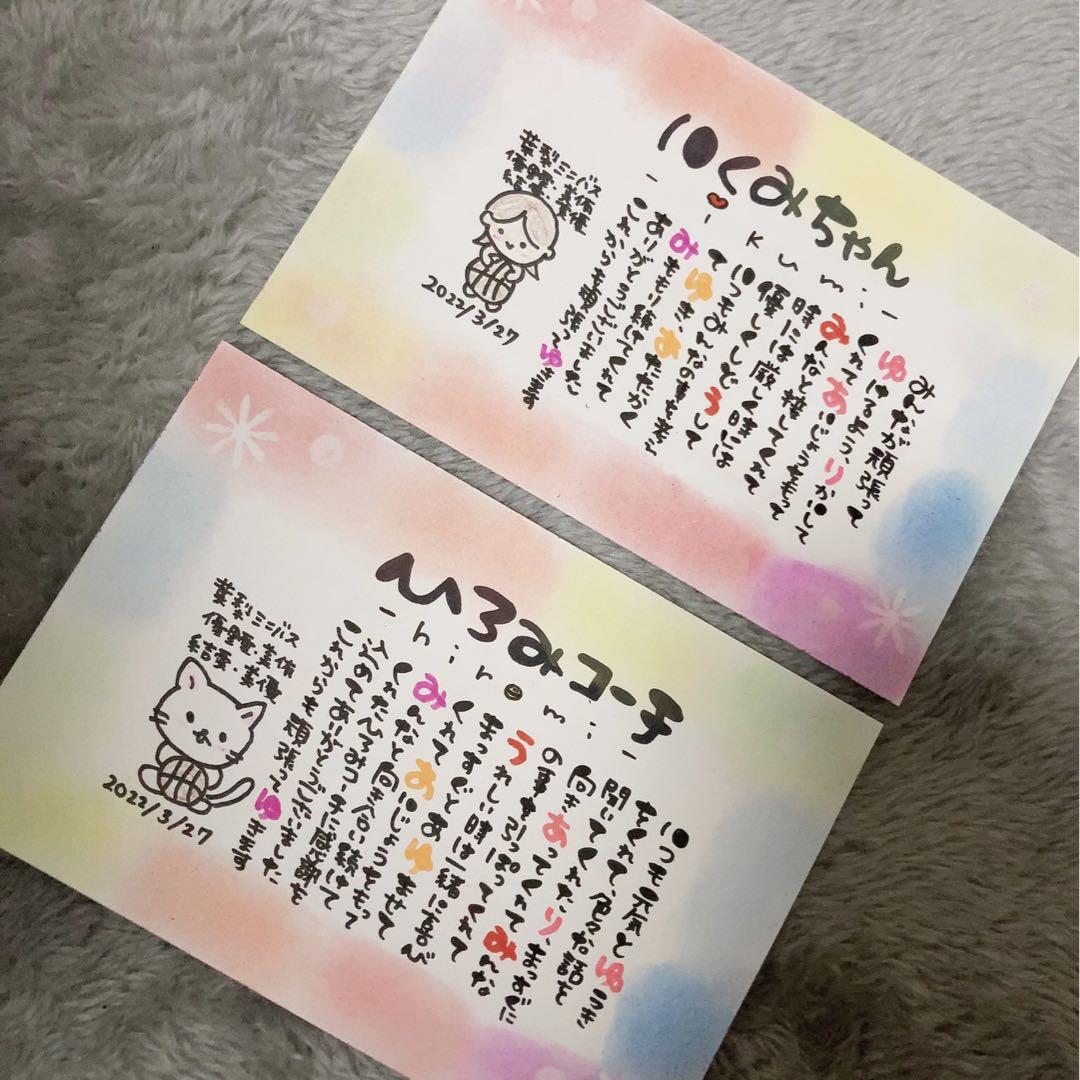 いくみちゃん
- i k u m i -
みんなが頑張って
ゆけるよう、りかいして
くれてあいじょうをもって
みんなと接してくれて
時には厳しく時には
優しくしどうして
いつもみんなの事を考え
てゆき、あたたかく
みまもり続けてくれて
ありがとうございました
これからも頑張ってゆきます
葉梨ミニバス
2022/3/27
ひろみコーチ
- h i r o m i -
いつも元気とゆうき
をくれて、色々な話を
聞いてくれたり、まっすぐに
向きあってくれてみんな
の事を引っぱってくれて
うれしい時は一緒に喜び
まっすぐとあゆませて
くれてあいじょうをもって
みんなと向き合い続けて
くれたひろみコーチに感謝を
込めてありがとうございました
これからも頑張ってゆきます
葉梨ミニバス
結愛・美優
2022/3/27